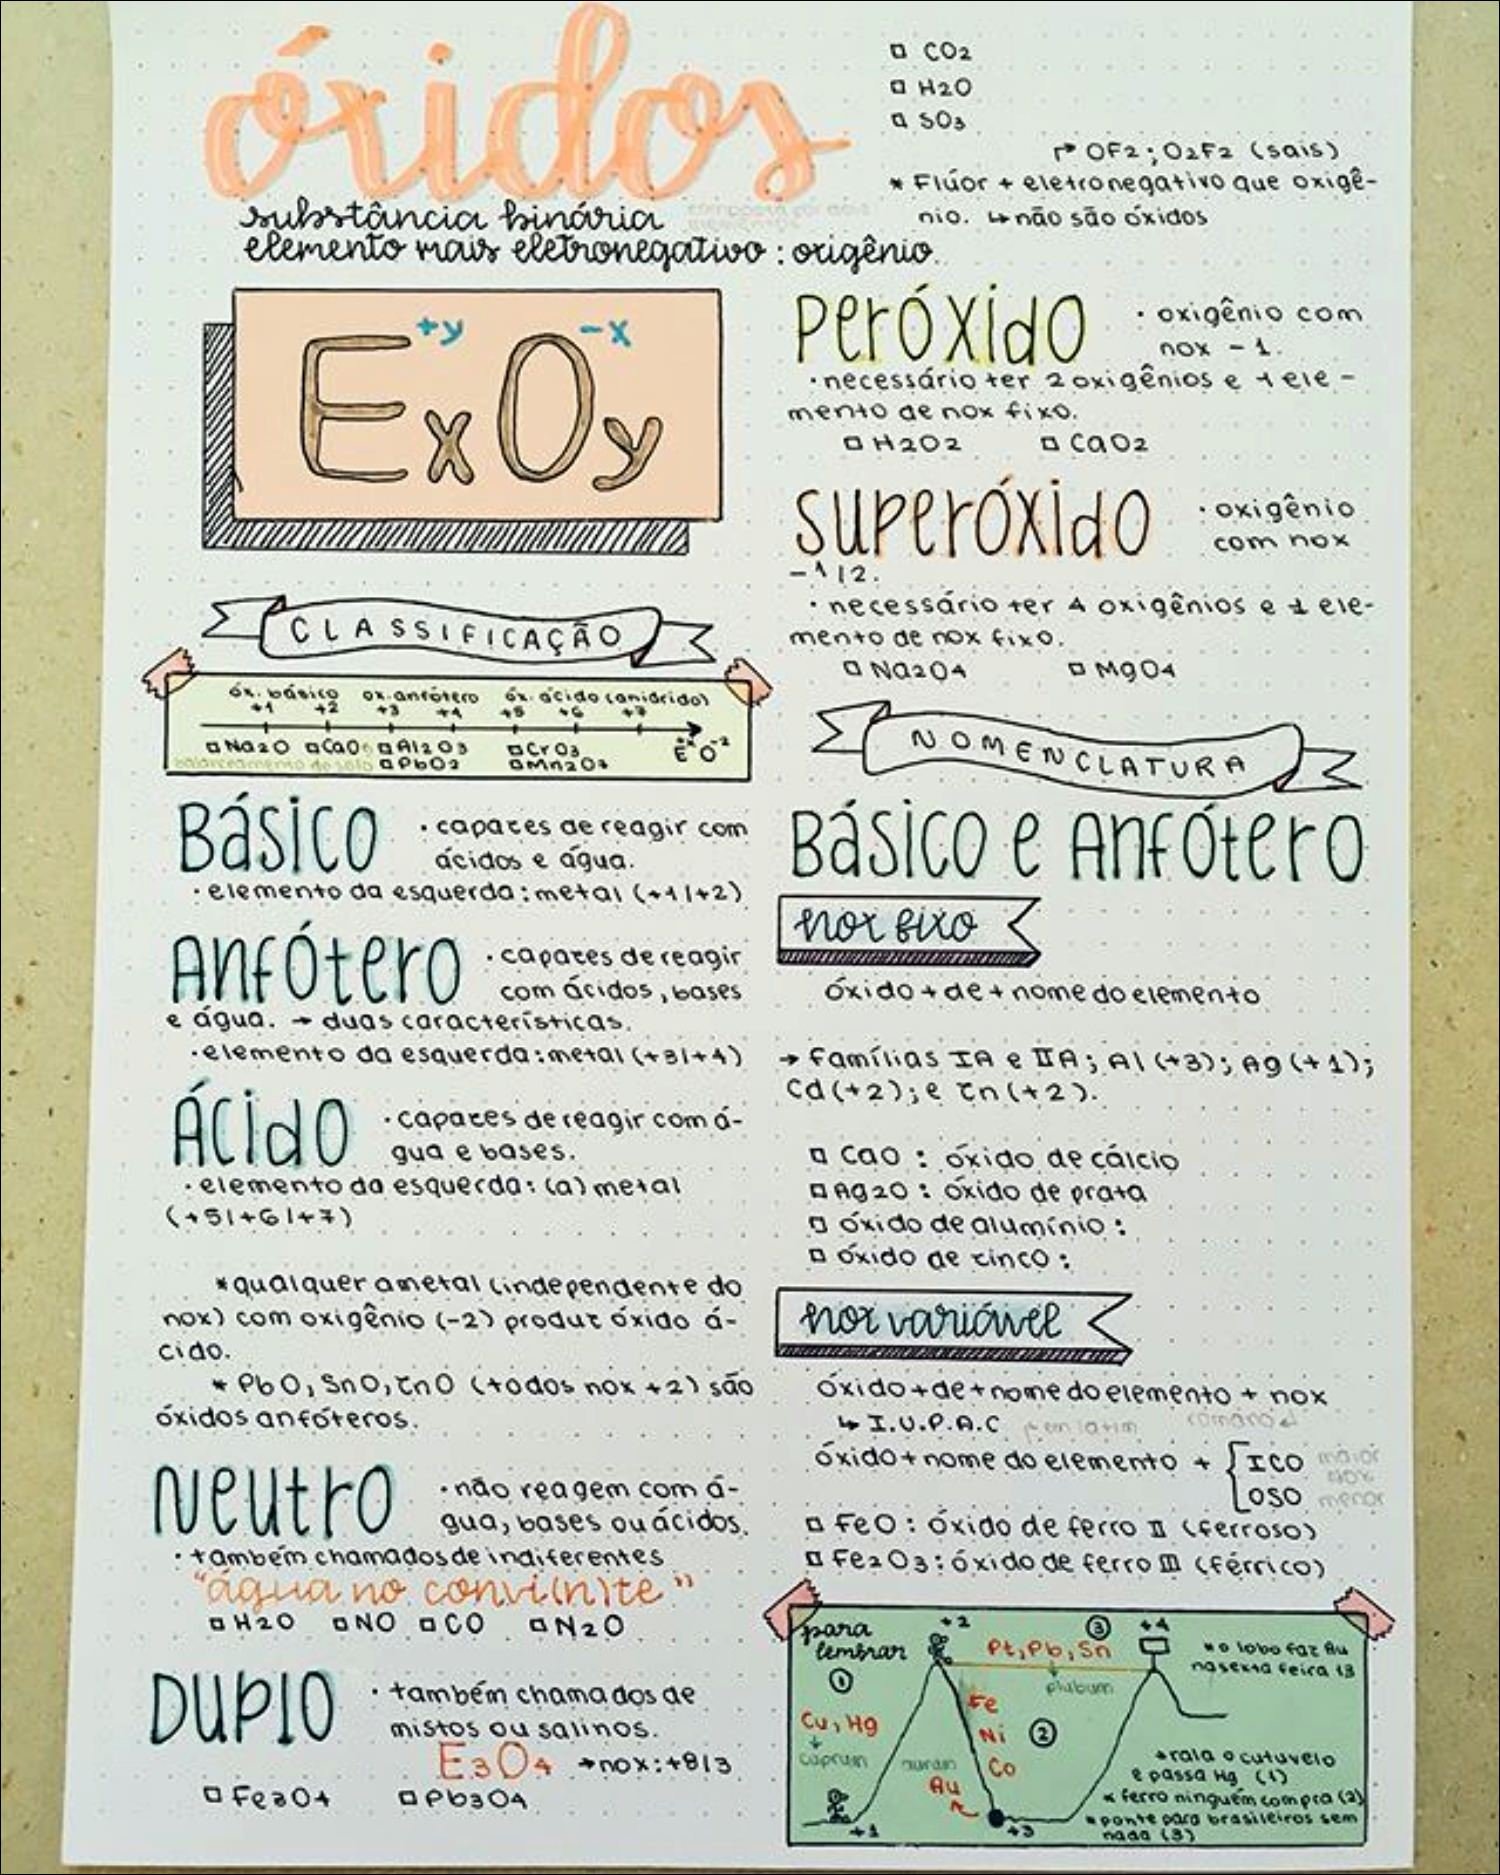 óxidos
substância binária
elemento mais eletronegativo: oxigênio.
CO2
H2O
SO3
OF2; O2F2 (sais)
* Flúor + eletronegativo que oxigê-
nio. ↳ não são óxidos
+y -x
ExOy
CLASSIFICAÇÃO
óx. básico ox. anfótero óx. ácido (anidrido)
+1 +2 +3 +4 +5 +6 +7
Na2O CaO Al2O3 CrO3 E+x O-2
balanceamento de sala PbO2 Mn2O7
Básico
· capazes de reagir com
ácidos e água.
· elemento da esquerda: metal (+1/+2)
Anfótero
· capazes de reagir
com ácidos, bases
e água. → duas características.
· elemento da esquerda: metal (+3/+4)
Ácido
· capazes de reagir com á-
gua e bases.
· elemento da esquerda: (a) metal
(+5/+6/+7)
* qualquer ametal (independente do
nox) com oxigênio (-2) produz óxido á-
cido.
* PbO, SnO, ZnO (todos nox +2) são
óxidos anfóteros.
Neutro
· não reagem com á-
gua, bases ou ácidos.
· também chamados de indiferentes
"água no convi(n)te"
H2O NO CO N2O
Duplo
· também chamados de
mistos ou salinos.
E3O4 → nox: +8/3
Fe3O4 Pb3O4
Peróxido
· oxigênio com
nox -1.
· necessário ter 2 oxigênios e 1 ele-
mento de nox fixo.
H2O2 CaO2
Superóxido
· oxigênio
com nox
-1/2.
· necessário ter 4 oxigênios e 1 ele-
mento de nox fixo.
Na2O4 MgO4
NOMENCLATURA
Básico e Anfótero
nox fixo
óxido + de + nome do elemento
→ Famílias IA e IIA; Al (+3); Ag (+1);
Cd (+2); e Zn (+2).
CaO : óxido de cálcio
Ag2O : óxido de prata
óxido de alumínio :
óxido de zinco :
nox variável
óxido + de + nome do elemento + nox
↳ I.U.P.A.C em latim romano
óxido + nome do elemento + { ICO maior
nox
OSO menor
FeO : óxido de ferro II (ferroso)
Fe2O3 : óxido de ferro III (férrico)
para
lembrar
+2 3 +4
Pt, Pb, Sn
plubum
1
Cu, Hg
cuprum
Fe
Ni
Co
2
aurum
Au
+1 +3
* o lobo faz Au
na sexta feira 13
* rala o cutuvelo
e passa Hg (1)
* ferro ninguém compra (2)
* ponte para brasileiros sem
nada (3)